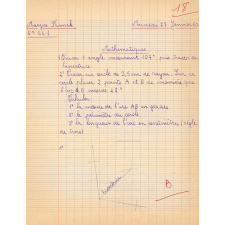 18
Mathématiques
1° Tracer 1 angle mesurant 107° puis tracer sa bissectrice
2° Tracer un cercle de 3,5 cm de rayon. Sur ce
cercle placer 2 points A et B de manière que
l'arc AB mesure 42°
Calculer
1° la mesure de l'arc AB en grades
2° le périmètre du cercle
3° la longueur de l'arc en centimètres (règle
de trois)
B